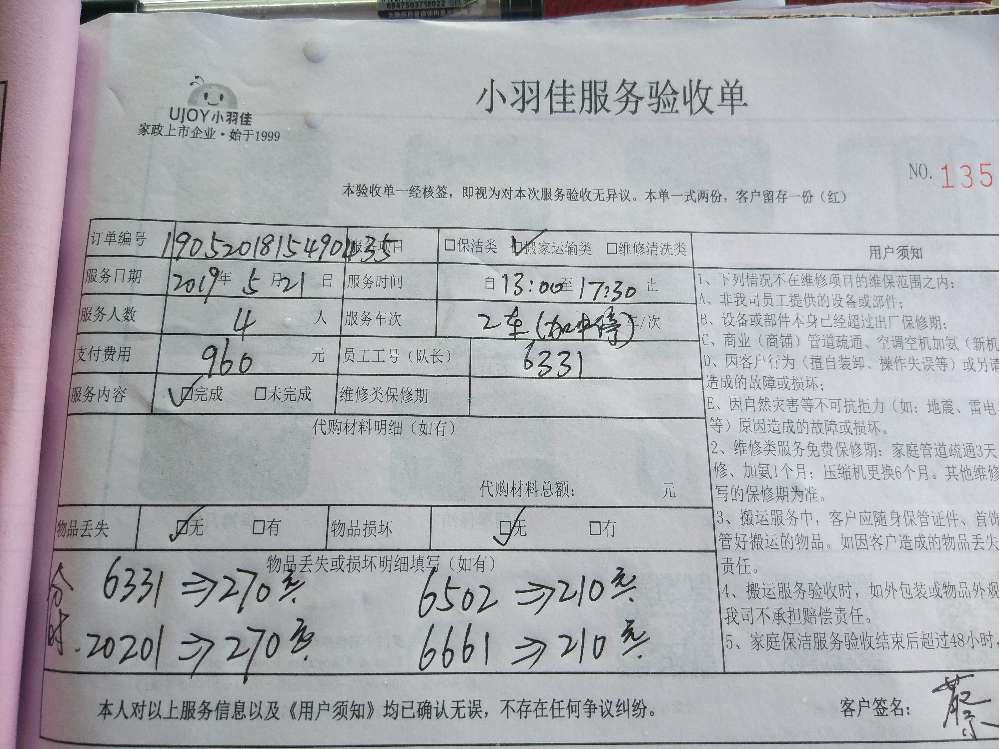 UJOY小羽佳
家政上市企业·始于1999
小羽佳服务验收单
NO. 135
本验收单一经核签，即视为对本次服务验收无异议。本单一式两份，客户留存一份（红）
订单编号 190520181549 项目 □保洁类 □搬家运输类 □维修清洗类
服务日期 2019年 5月21日 服务时间 自13:00至17:30止
服务人数 4 人 服务车次 2车
支付费用 960 元 员工工号（队长） 6331
服务内容 □完成 □未完成 维修类保修期
代购材料明细（如有）
代购材料总额： 元
物品丢失 □无 □有 物品损坏 □无 □有
物品丢失或损坏明细填写（如有）
6331⇒270元 6502⇒210元
20201⇒270元 6661⇒210元
用户须知
1、下列情况不在维修项目的维保范围之内：
A、非我司员工提供的设备或部件；
B、设备或部件本身已经超过出厂保修期；
C、商业（商铺）管道疏通、空调空机加氨（新机
D、因客户行为（擅自装卸、操作失误等）或另请
造成的故障或损坏；
E、因自然灾害等不可抗拒力（如：地震、雷电
等）原因造成的故障或损坏。
2、维修类服务免费保修期：家庭管道疏通3天
修、加氨1个月；压缩机更换6个月。其他维修
写的保修期为准。
3、搬运服务中，客户应随身保管证件、首饰
管好搬运的物品。如因客户造成的物品丢失
责任。
4、搬运服务验收时，如外包装或物品外观
我司不承担赔偿责任。
5、家庭保洁服务验收结束后超过48小时，
本人对以上服务信息以及《用户须知》均已确认无误，不存在任何争议纠纷。 客户签名： 蔡